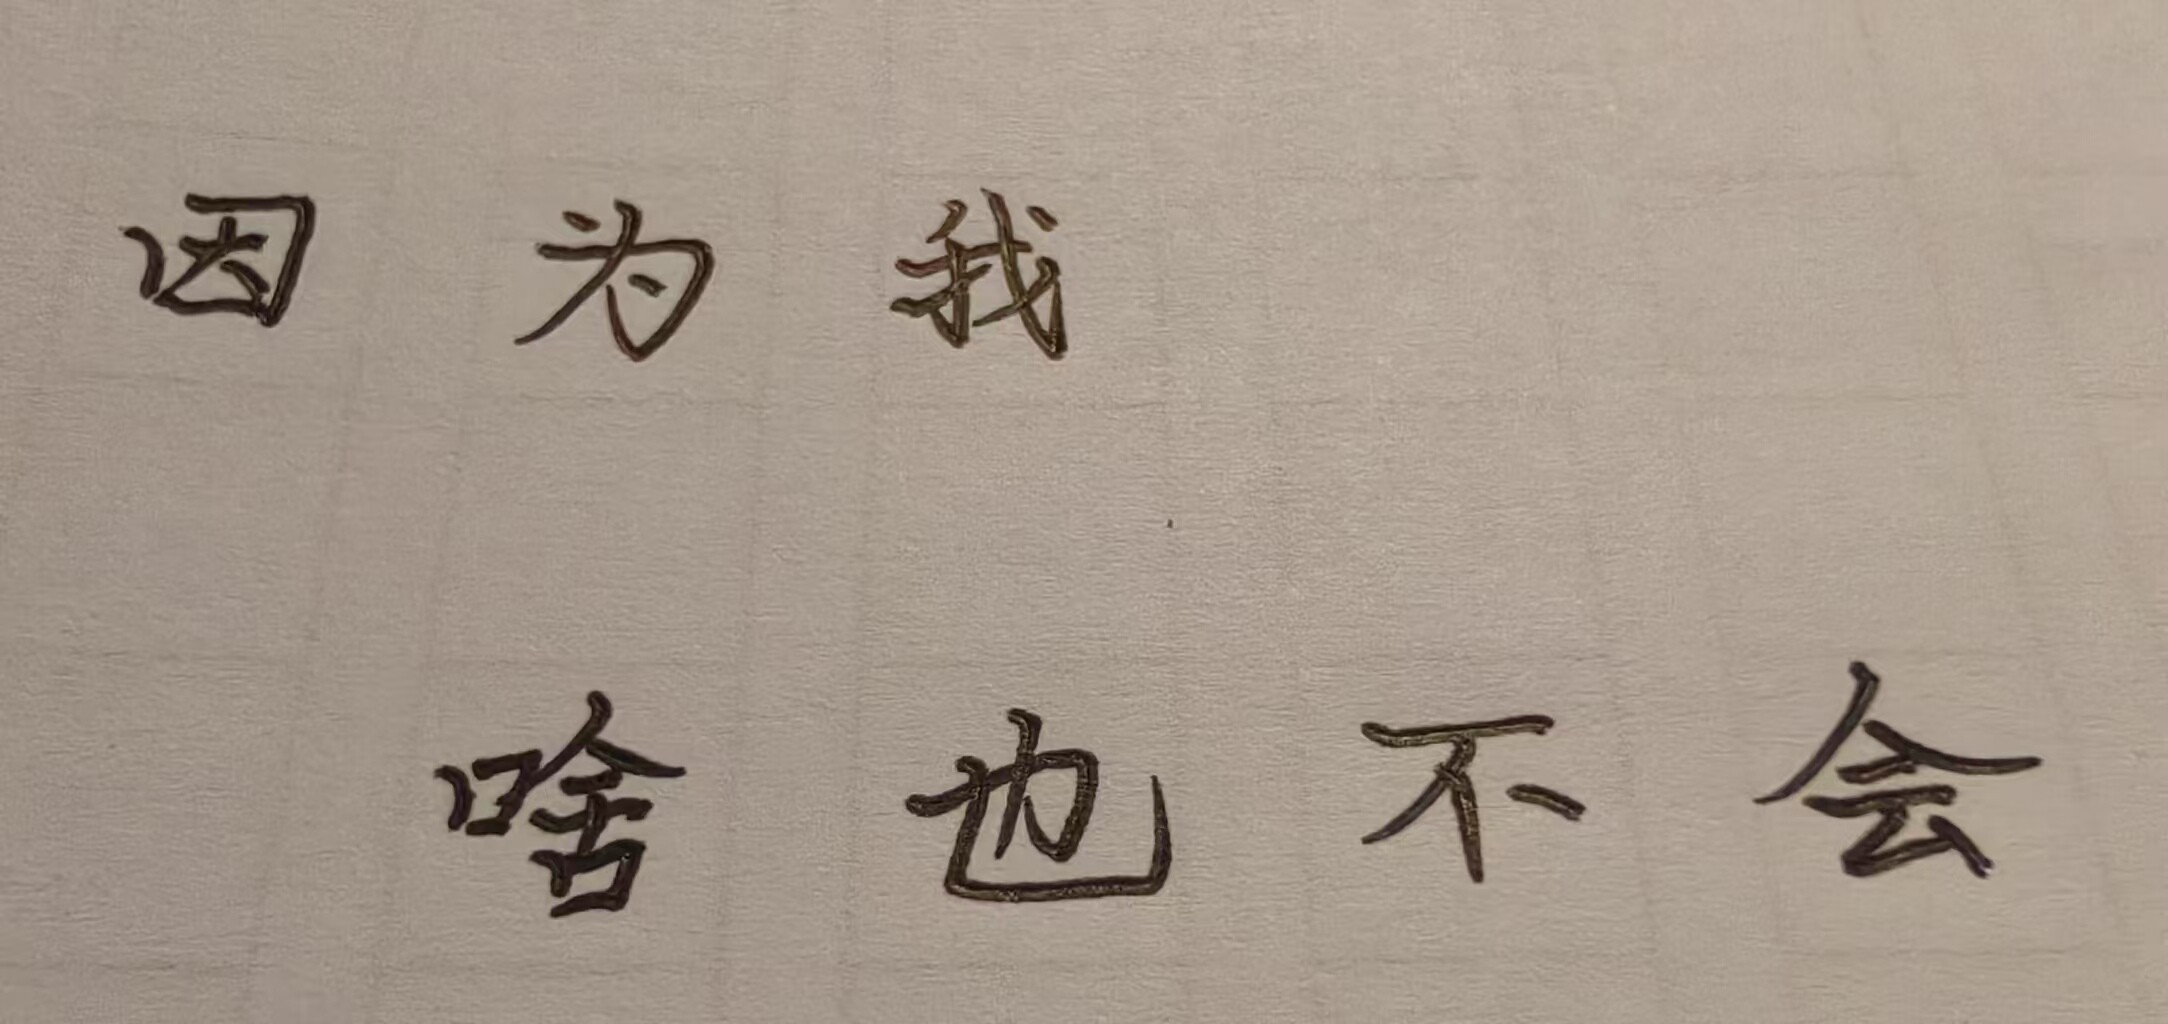 因为我
啥也不会